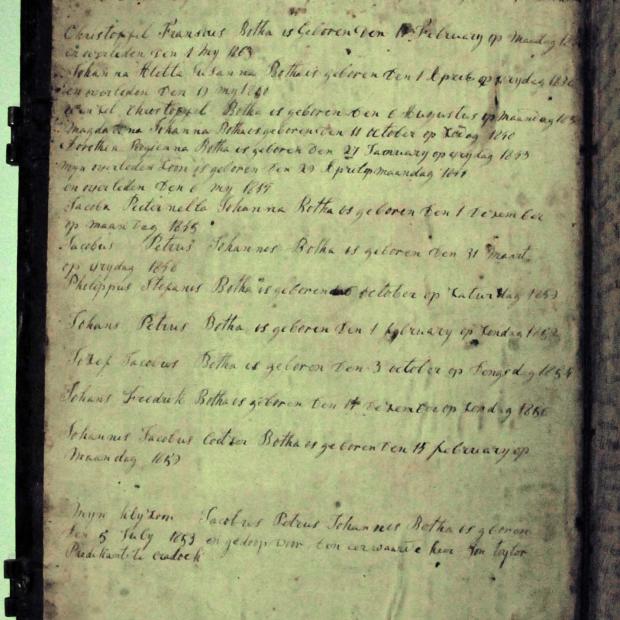 Christoffel Fransius Botha is geboren Den 11 February op maandag
en overleden Den 1 My 1863
Johanna Aletta Susanna Botha is geboren den 1 April op vrydag
en overleden Den 19 my 1840
Christoffel Botha is geboren Den 6 Augustus op maandag
Magdalena Johanna Botha is geboren Den 11 october op 1840
Dorothea Botha is geboren Den 27 Januuary op vrydag 1843
myn overleden Zoon is geboren den 29 April op maandag
en overleden Den 6 my
Jacoba Pieternella Johanna Botha is geboren Den 1 Dezember
op maandag
Jacobus Petrus Johannes Botha is geboren Den 31 Maart
op vrydag 1850
Philippus Stefanus Botha is geboren october op Zaturdag
Johans Petrus Botha is geboren Den 1 february op Zondag
Jozef Jacobus Botha is geboren Den 3 october op Dengsdag
Johans Fredrik Botha is geboren Den 14 Dezember op zondag
Johannes Jacobus Coetzer Botha is geboren Den 15 february op
maandag
myn klyzoon Jacobus Petrus Johannes Botha is geboren
Den 5 July 1853 en gedoop voor Den eerwaarde heer Jon taylor
Predikant te cradock